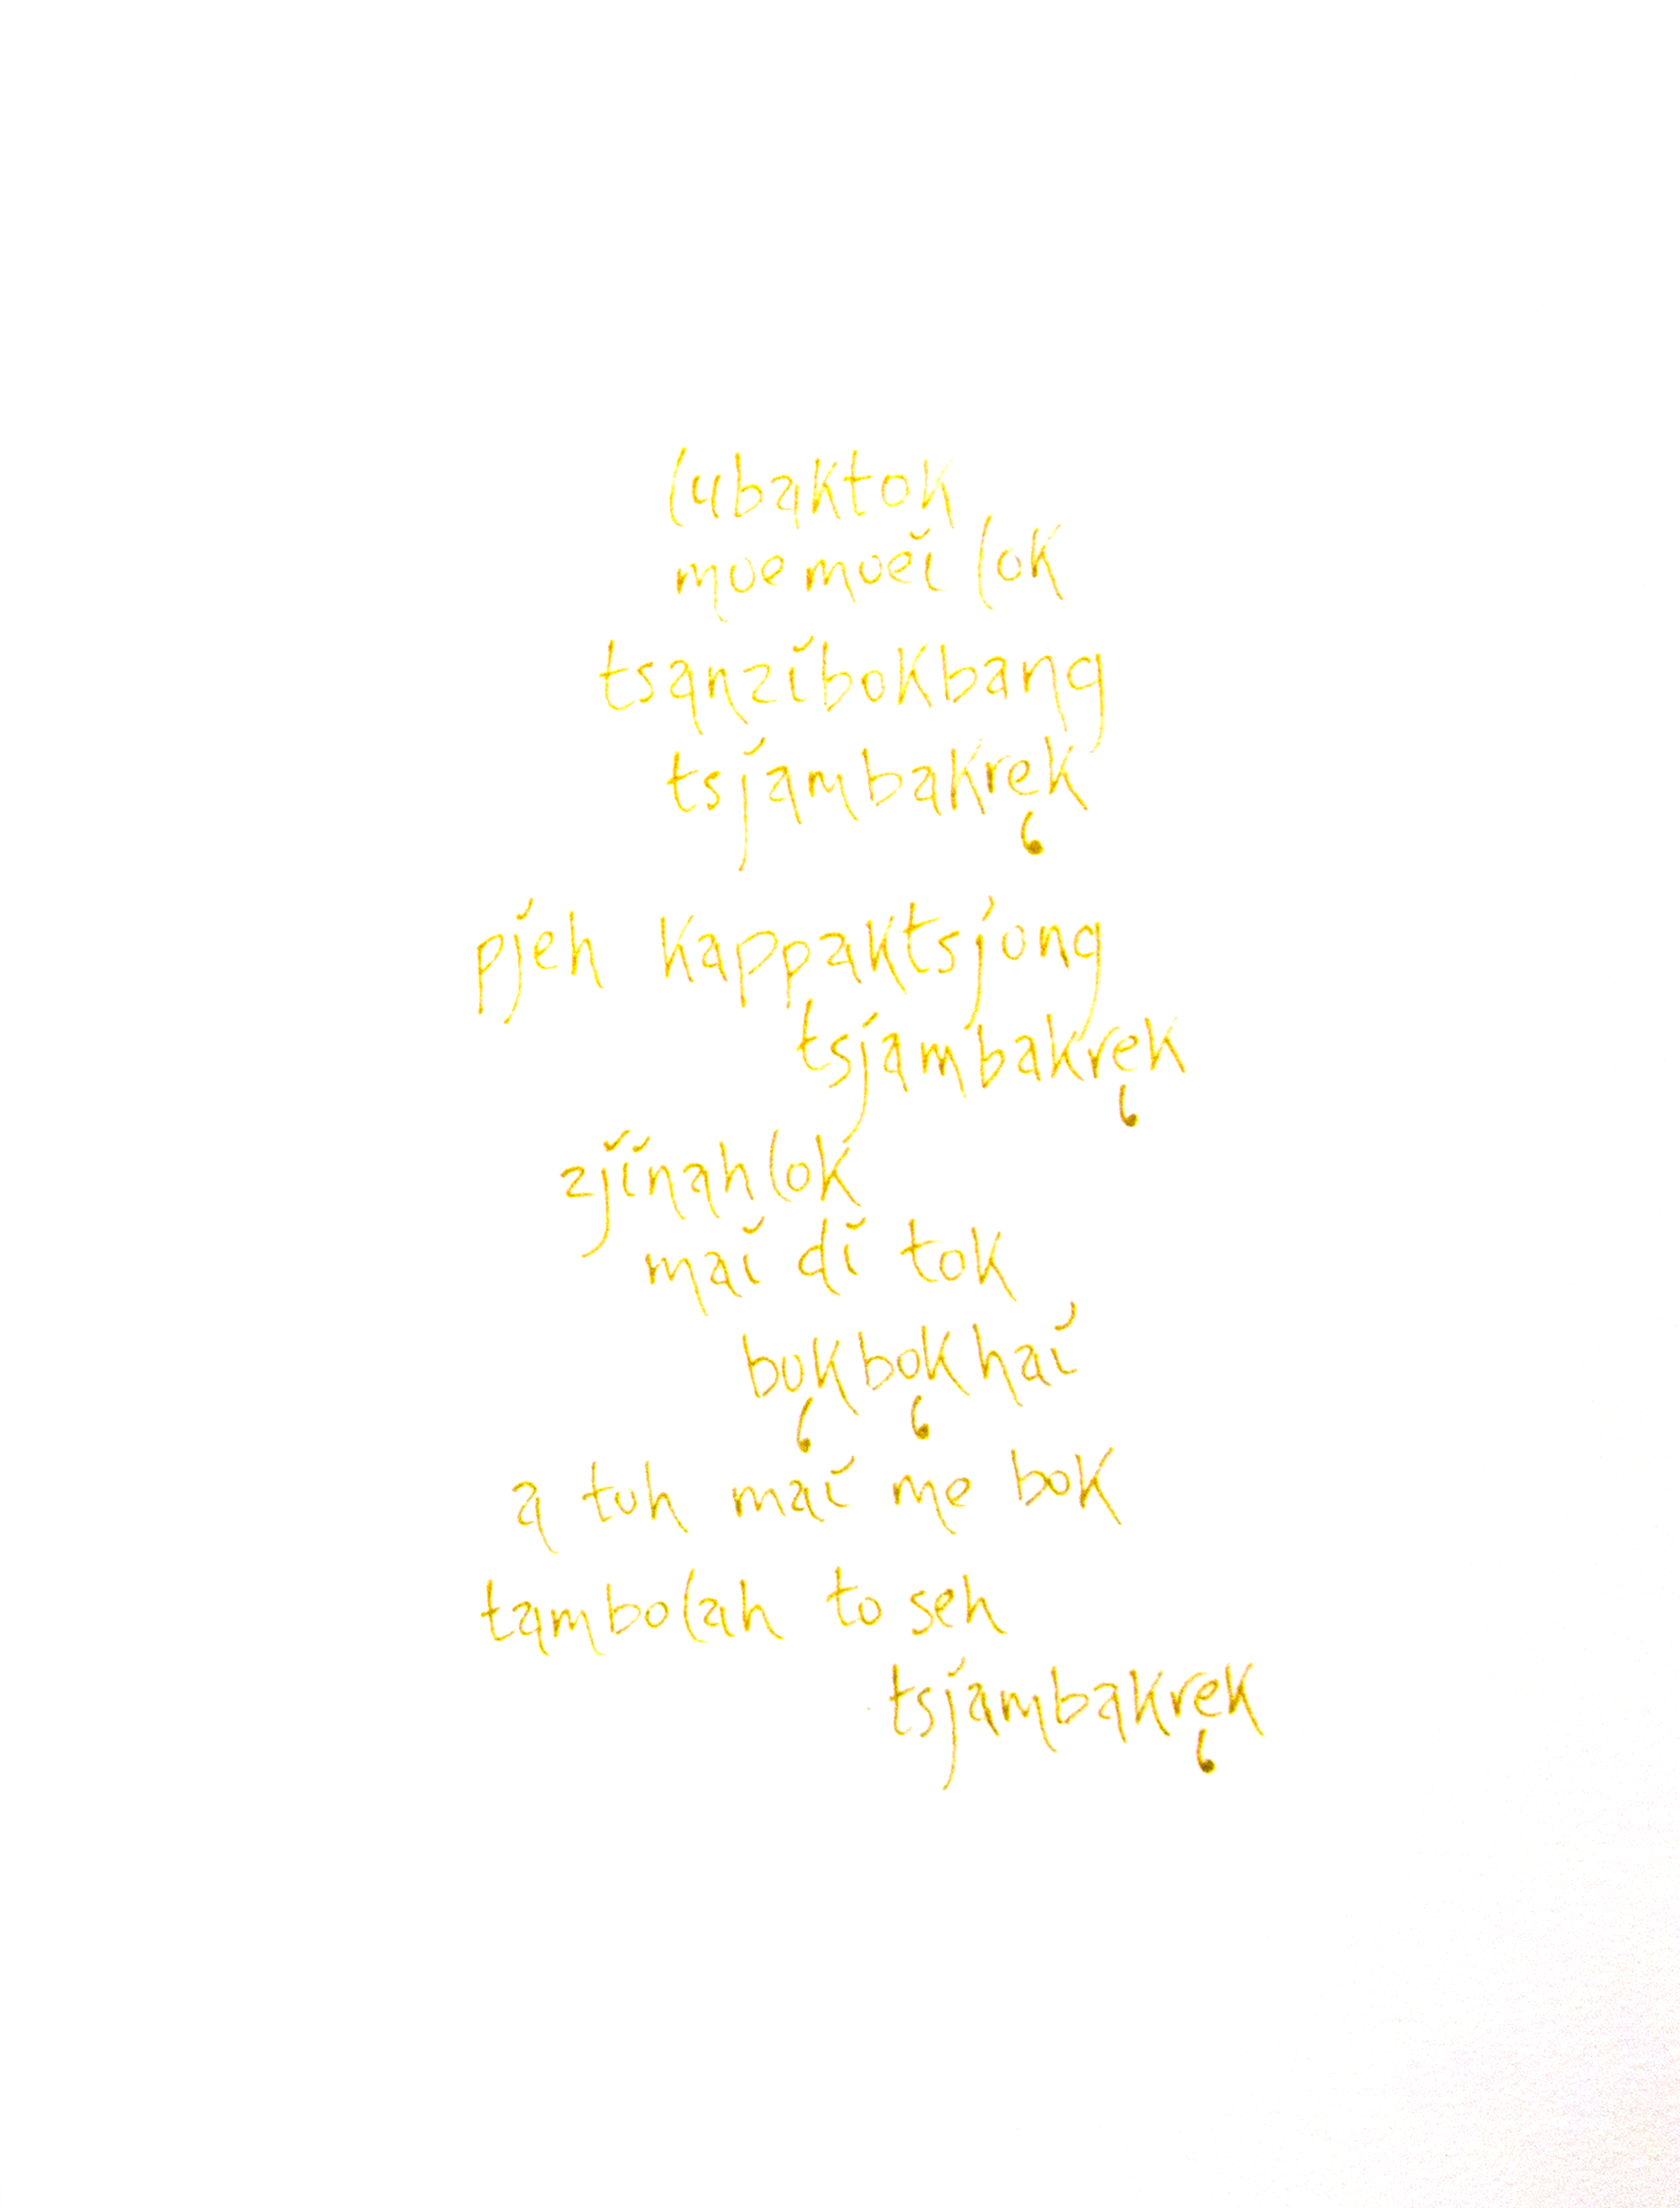 lubaktok
moemoei lok
tsanzibokbang
tsjambakrek
pjeh kappaktsjong
tsjambakrek
zjinahlok
mai di tok
bokbokhai
a toh mai me bok
tambolah to seh
tsjambakrek